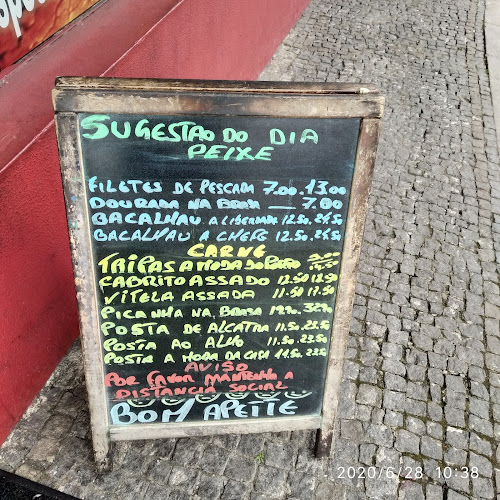 SUGESTÃO DO DIA
PEIXE
FILETES DE PESCADA 7.00.13.00
DOURADA NA BRASA — 7.00
BACALHAU A LIBERDADE 12.50.24.50
BACALHAU A CHEFE 12.50.24.50
CARNE
TRIPAS A MODA DO PORTO
CABRITO ASSADO 12.50
VITELA ASSADA 11.50 17.50
PICANHA NA BRASA
POSTA DE ALCATRA 11.50.22.50
POSTA AO ALHO 11.50.22.50
POSTA A MODA DA CASA 11.50.22.50
AVISO
POR FAVOR MANTENHA A
DISTANCIA SOCIAL
BOM APETITE
2020/6/28 10:38